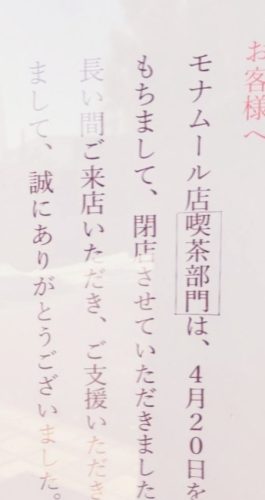 お客様へ
モナムール店喫茶部門は、4月20日を
もちまして、閉店させていただきました
長い間ご来店いただき、ご支援いただき
まして、誠にありがとうございました。